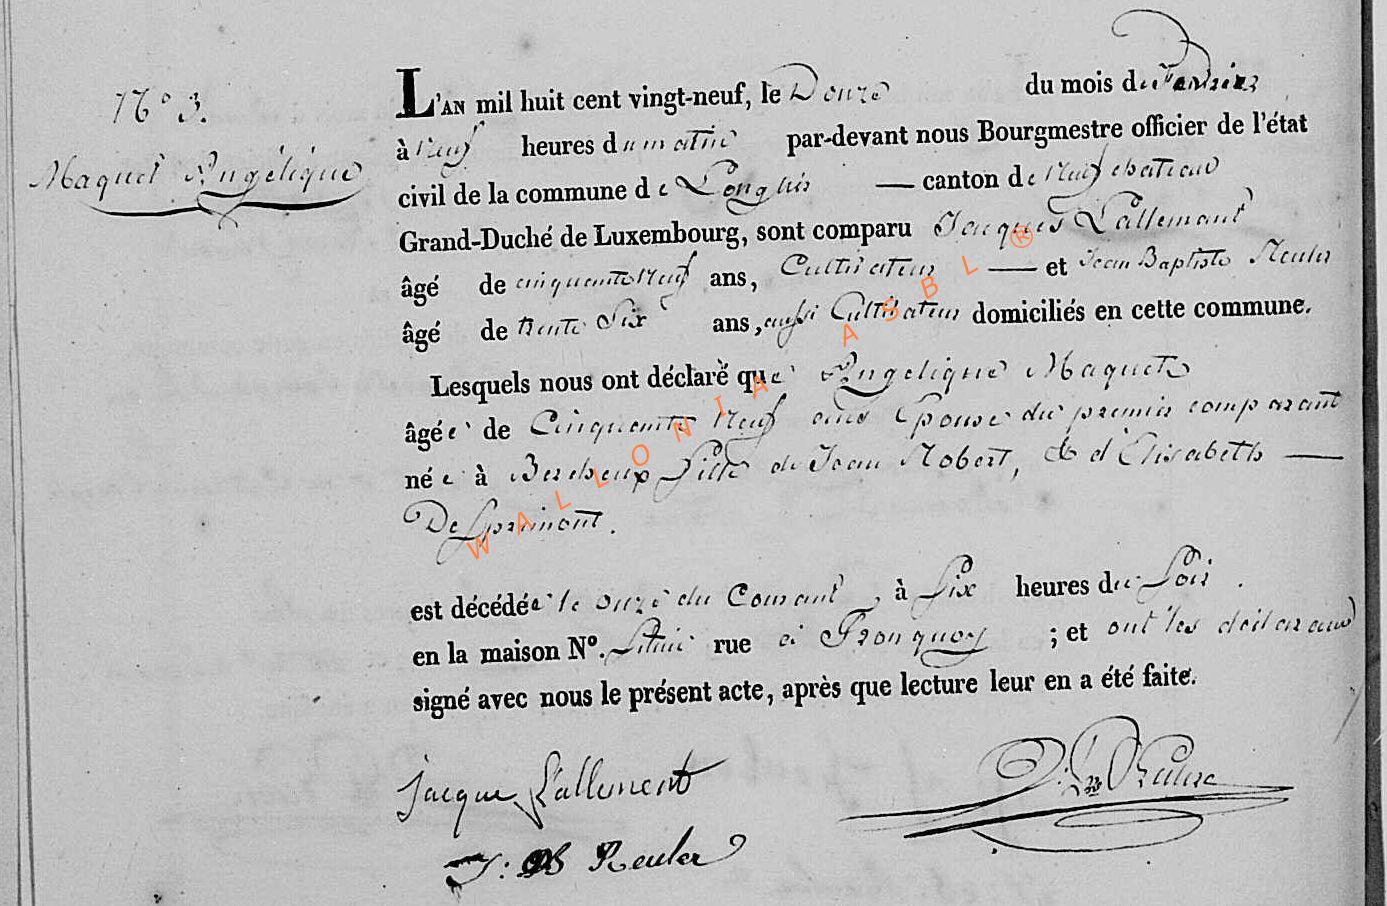 N° 3.
Maquet Angélique
L'AN mil huit cent vingt-neuf, le Douze du mois de Janvier
à neuf heures du matin par-devant nous Bourgmestre officier de l'état
civil de la commune de Longlier — canton de Neufchateau
Grand-Duché de Luxembourg, sont comparu Jacques Lallemant
âgé de cinquante neuf ans, Cultivateur — et Jean Baptiste Reuler
âgé de trente Six ans, aussi Cultivateur domiciliés en cette commune.
Lesquels nous ont déclaré que Angelique Maquet
âgée de Cinquante neuf ans Epouse du premier comparant
née à Bercheux fille de Jean Robert, & d'Elisabeth —
De Sprimont.
est décédée le onze du Courant, à Six heures du Soir.
en la maison N°. rue à Tronquoy ; et ont les déclarans
signé avec nous le présent acte, après que lecture leur en a été faite.
Jacque Lallement
J: B Reuler
WALLONIA ASBL ®